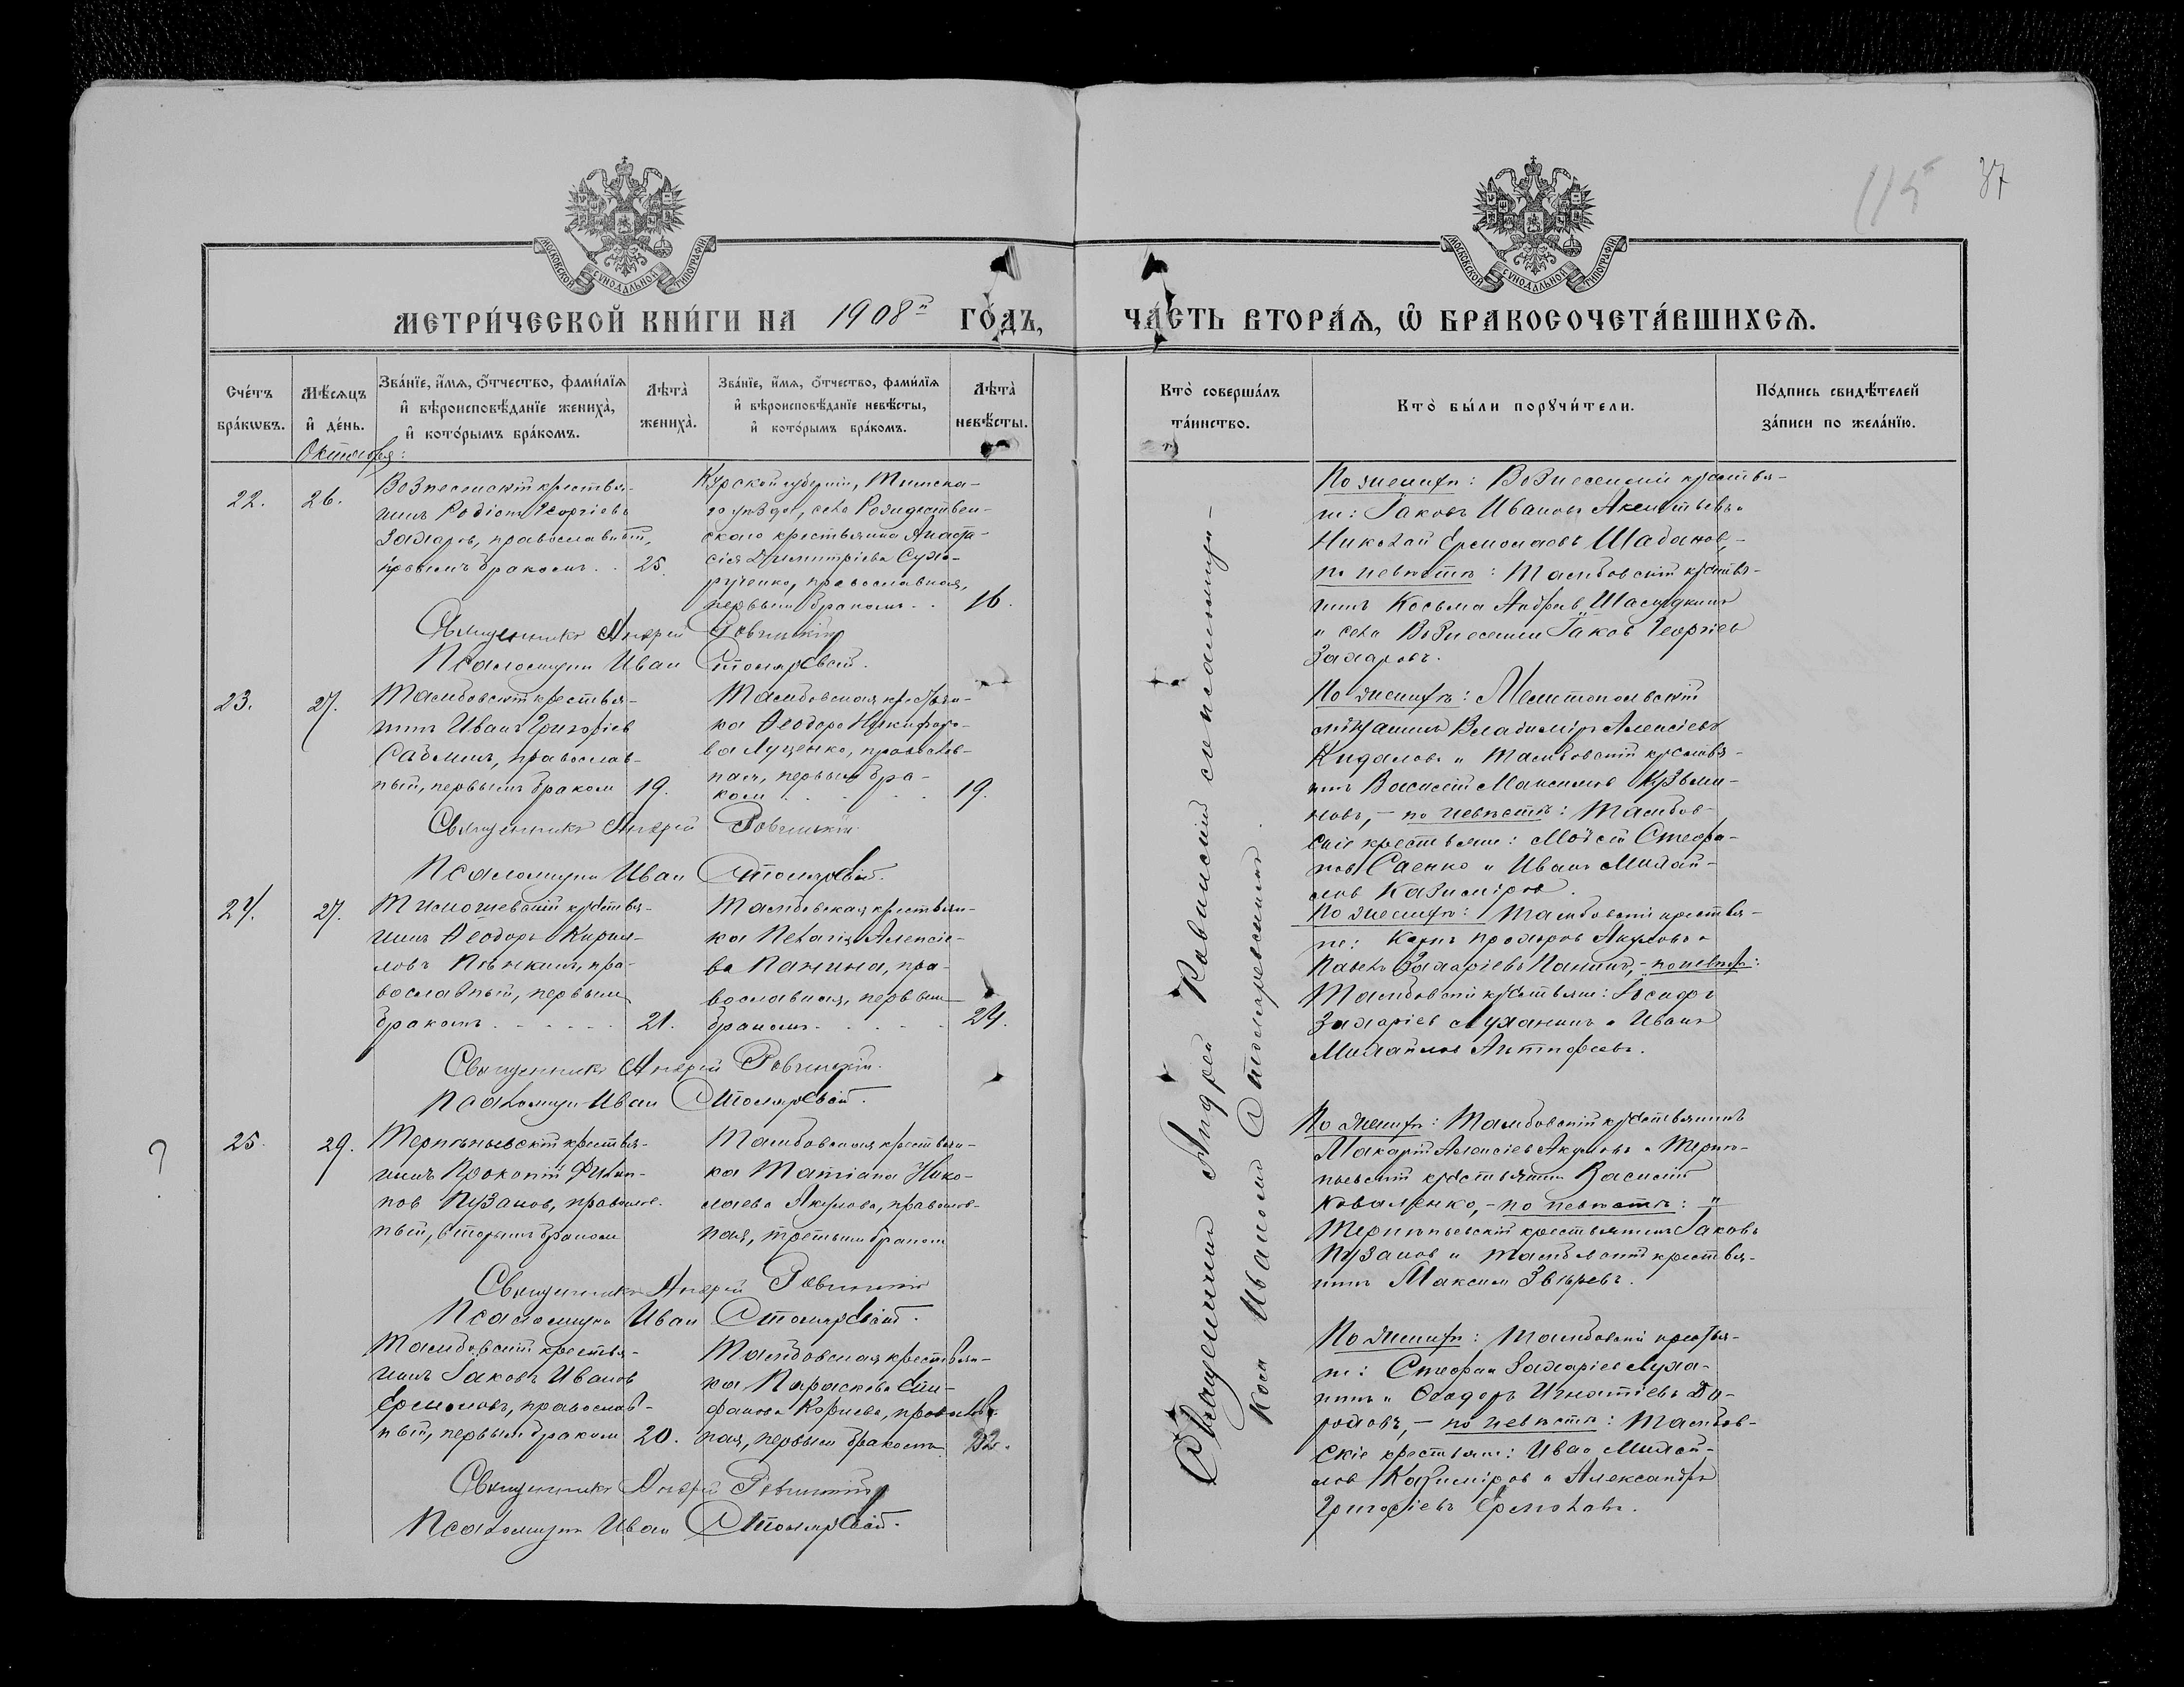 115 37
МОСКОВСКОЙ СУНОДАЛЬНОЙ ТИПОГРАФІИ
МОСКОВСКОЙ СУНОДАЛЬНОЙ ТИПОГРАФІИ
МЕТРИ́ЧЕСКОЙ КНИ́ГИ НА 1908й ГО́ДЪ,
ЧА́СТЬ ВТОРА́Ѧ, Ѽ БРАКОСОЧЕТА́ВШИХСѦ.
Сче́тъ бра́кѡвъ.
Мѣ́сѧцъ и҆ де́нь.
Зва́нїе, и҆́мѧ, ѻ҆́тчество, фами́лїѧ
и҆ вѣроисповѣ́данїе жениха̀,
и҆ кото́рымъ бра́комъ.
Лѣта̀ жениха̀.
Зва́нїе, и҆́мѧ, ѻ҆́тчество, фами́лїѧ
и҆ вѣроисповѣ́данїе невѣ́сты,
и҆ кото́рымъ бра́комъ.
Лѣта̀ невѣ́сты.
Кто̀ соверша́лъ
та́инство.
Кто̀ бы́ли порꙋчи́тели.
По́дпись свидѣ́телей
за́писи по жела́нїю.
Октября:
22. 26.
Вознесенскій крестья-
нинъ Родіонъ Георгіевъ
Захаровъ, православный,
первымъ бракомъ . . 25.
Курской губерніи, Тимска-
го уѣзда, села Рождествен-
скаго крестьянина Анаста-
сія Димитріева Сухо-
рученко, православная,
первымъ бракомъ . . 16.
Священникъ Андрей Ровинскій
Псаломщикъ Иван Столяревскій.
23. 27.
Тамбовскій крестья-
нинъ Иванъ Григоріев
Сабѣлинъ, православ-
ный, первымъ браком 19.
Тамбовская крестьян-
ка Ѳеодора Никифоро-
ва Луценко, православ-
ная, первым бра-
ком . . . . . 19.
Священникъ Андрей Ровинскій
Псаломщикъ Иван Столяревскій.
24. 27.
Тимошевскій крестья-
нинъ Ѳеодоръ Кирил-
ловъ Пѣнкинъ, пра-
вославный, первымъ
бракомъ . . . . . . 21.
Тамбовская крестьян-
ка Пелагія Алексіе-
ва Панина, пра-
вославная, первым
бракомъ . . . . 24.
Священникъ Андрей Ровинскій.
Псаломщикъ Иван Столяревскій.
?
25. 29.
Терпѣньевскій крестья-
нинъ Прокопій Филип-
пов Пузанов, православ-
ный, вторымъ браком
Тамбовская крестьян-
ка Татіана Нико-
лаева Акулова, православ-
ная, третьим браком
Священникъ Андрей Ровинскій
Псаломщикъ Иван Столяревскій.
Тамбовскій крестья-
нинъ Іаковъ Иванов
Ермоловъ, православ-
ный, первым браком 20.
Тамбовская крестьян-
ка Параскева Сте-
фанова Корнева, православ-
ная, первым бракомъ 22.
Священникъ Андрей Ровинскій
Псаломщикъ Иван Столяревскій.
Священникъ Андрей Ровинскій съ псаломщи-
ком Иваном Столяревскимъ.
По женихѣ: Вознесенскіе крестья-
не: Іаковъ Ивановъ Аксентьевъ и
Николай Ермолаевъ Шабанов,-
по невѣстѣ: Тамбовскій крестья-
нинъ Косьма Андреев
и села Вознесенки Іаков Георгіев
Захаровъ.
По женихѣ: Мелитопольскій
мѣщанинъ Владиміръ Алексіевъ
Кидаловъ и Тамбовскій крестья-
нинъ Василій Максимов Кузьми-
новъ, - по невѣстѣ: Тамбов-
скіе крестьяне: Моѵсей Стефа-
нов Саенко и Иванъ Михай-
лов Казиміров.
По женихѣ: Тамбовскіе крестья-
не: Карпъ Прохоров Акуловъ и
Павелъ Захаріевъ Панинъ, - по невѣстѣ:
Тамбовскіе крестьяне: Іосифъ
Захаріев Луханинъ и Иванъ
Михайлов Антиофеевъ.
По женихѣ: Тамбовскій крестьянинъ
Макарій Алексіев Акуловъ и Терпѣ-
ньевскій крестьянин Василій
Коваленко, - по невѣстѣ: "
Терпѣньевскій крестьянинъ Іаковъ
Пузанов и Тамбовскій крестья-
нинъ Максим Звѣревъ.
По женихѣ: Тамбовскіе крестья-
не: Стефан Захаріев Луха-
нинъ и Ѳеодоръ Игнатіевъ До-
роховъ, - по невѣстѣ: Тамбов-
скіе крестьяне: Иван Михай-
лов Казиміров и Александръ
Григоріевъ Ермоловъ.